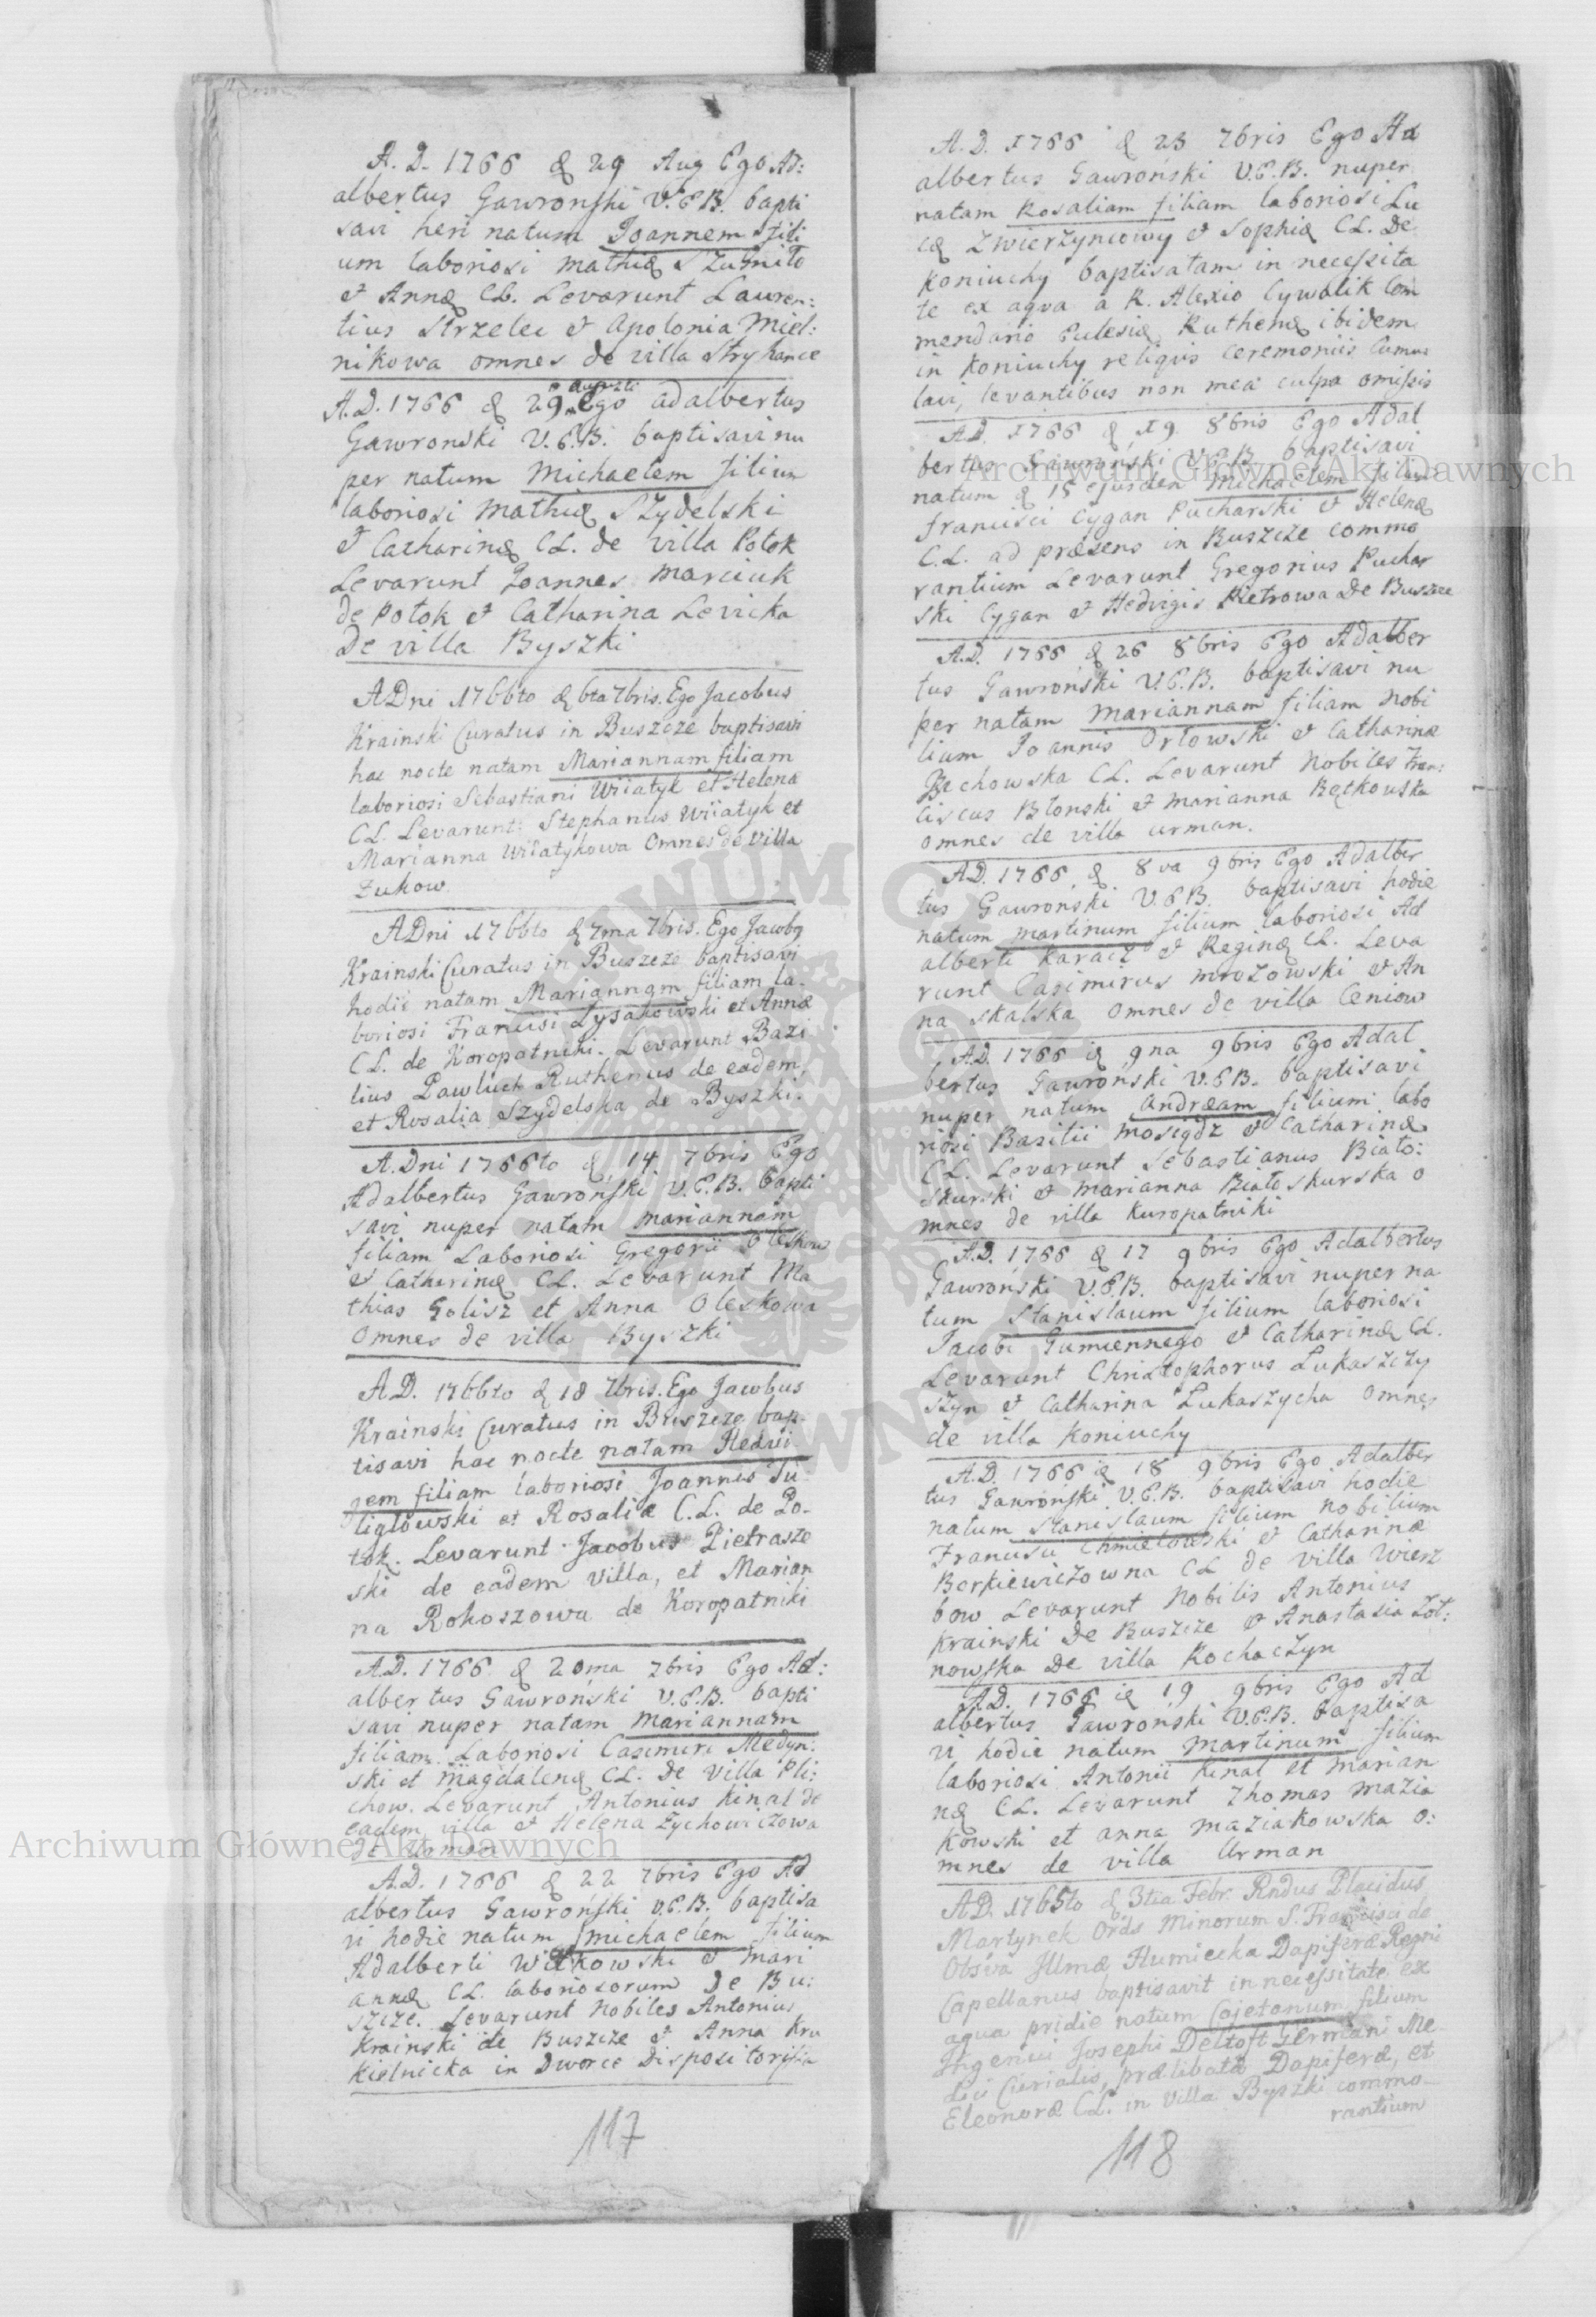 A. D. 1766 d 29 Aug Ego Ad:
albertus Gawronski V. C. B. bapti
savi heri natum Joannem fili
um laboriosi Mathiæ
et Annæ CL. Levarunt Lauren:
tius Strzelec et Apolonia Miel:
nikowa omnes de villa Stryhance
A. D. 1766 d 29 Augusti Ego adalbertus
Gawronski V. C. B. baptisavi nu
per natum Michaelem filium
laboriosi Mathiæ Szydelski
et Catharinæ CL. de villa Potok
Levarunt Joannes Marciuk
de Potok et Catharina Levicka
De villa Byszki
ADni 1766to d 6ta 7bris. Ego Jacobus
Krainski Curatus in Buszcze baptisavi
hac nocte natam Mariannam filiam
laboriosi Sebastiani Wiiatyk et Helenæ
CL. Levarunt: Stephanus Wiiatyk et
Marianna Wiiatykowa Omnes de Villa
Żukow
ADni 1766to d 7ma 7bris. Ego Jacobg
Krainski Curatus in Buszcze baptisavi
hodie natam Mariannam filiam la-
boriosi Francisci Lysakowski et Annæ
CL. de Koropatniki. Levarunt Bazi
lius Pawluch Ruthenus de eadem,
et Rosalia Szydelska de Byszki.
A. Dni 1766to d 14 7bris Ego
Adalbertus Gawronski V. C. B. bapti
savi nuper natam mariannam
filiam Laboriosi Gregorii Oleskow
et Catharinæ CL. Levarunt Ma
thias Golisz et Anna Oleskowa
Omnes de villa Byszki
AD. 1766to d 18 7bris. Ego Jacobus
Krainski Curatus in Buszcze bap-
tisavi hac nocte natam Hedvi
gem filiam laboriosi Joannis Tu
liglowski et Rosaliæ C. L. de Po-
tok. Levarunt Jacobus Pietrasze
ski de eadem villa, et Marian
na Rokoszowa de Koropatniki
A. D. 1766 d 20ma 7bris Ego Ad:
albertus Gawroński V. C. B. bapti
savi nuper natam Mariannam
filiam Laboriosi Casimiri Medyn:
ski et magdalenæ CL. De villa Pli:
chow. Levarunt Antonius Kinal de
eadem villa et Helena Zychowiczowa
de Urman
A. D. 1766 d 22 7bris Ego Ad
albertus Gawroński V. C. B. baptisa
vi hodie natum michaelem filium
Adalberti Witkowski et Mari
annæ CL. laboriosorum De Bu:
szcze. Levarunt Nobiles Antonius
Krainski de Buszcze et Anna Kru
kielnicka in Dworce Dispositorissa
117
A. D. 1766 d 23 7bris Ego Ad
albertus Gawroński V. C. B. nuper
natam Rosaliam filiam laboriosi Lu
cæ Zwierzyncowy et Sophiæ CL. De
Koniuchy baptisatam in necessita
te ex aqva a R. Alexio Cywalik Com
mendario Eclesiæ Ruthenæ ibidem
in Koniuchy reliqvis ceremoniis Cumu
lavi, levantibus non mea culpa omissis
A. D. 1766 d 19 8bris Ego Adal
bertus Gawroński V. C. B. baptisavi
natum d 15 ejusdem Michaelem filium
francisci Cygan Pucharski et Helenæ
C. L. ad præsens in Buszcze commo
rantium Levarunt Gregorius Puchar
ski Cygan et Hedvigis Pietrowa De Buszcze
A. D. 1766 d 26 8bris Ego Adalber
tus Gawroński V. C. B. baptisavi nu
per natam Mariannam filiam Nobi
lium Joannis Orlowski et Catharinæ
Bechowska CL. Levarunt Nobiles Fran:
ciscus Blonski et Marianna Bętkouska
omnes de villa Urman.
AD. 1766 d 8va 9bris Ego Adalber
tus Gawroński V. C. B. baptisavi hodie
natum Martinum filium laboriosi Ad
alberti Karacz et Reginæ CL. Leva
runt Casimirus Mrozowski et An
na Skalska Omnes de villa Ceniow
A. D. 1766 d 9na 9bris Ego Adal
bertus Gawroński V. C. B. baptisavi
nuper natum Andræam filium labo
riosi Basilii Mosiądz et Catharinæ
C. L. Levarunt Sebastianus Biało:
skurski et Marianna Białoskurska o
mnes de villa Kuropatniki
A. D. 1766 d 17 9bris Ego Adalbertus
Gawroński V. C. B. baptisavi nuper na
tum Stanislaum filium laboriosi
Jacobi Gumiennego et Catharinæ CL.
Levarunt Christophorus Lukaszczy
szyn et Catharina Lukaszycha Omnes
de villa Koniuchy
A. D. 1766 d 18 9bris Ego Adalber
tus Gawronski V. C. B. baptisavi hodie
natum Stanislaum filium nobilium
Francisci Chmielowski et Catharinæ
Borkiewiczowna CL de villa Wierz
bow Levarunt Nobilis Antonius
Krainski De Buszcze et Anastasia Zot:
nowska De villa Kochaczyn
A. D. 1766 d 19 9bris Ego Ad
albertus Gawroński V. C. B. baptisa
vi hodie natum Martinum filium
laboriosi Antonii Kinal et Marian
næ CL. Levarunt Thomas Mazia
kowski et anna maziakowska o:
mnes de villa Urman
AD. 1765to d 3tia Febr. Rndus Placidus
Martynek Ords Minorum S. Francisci de
Obsva Illmæ Humiecka Dapiferæ Regni
Capellanus baptisavit in necessitate ex
aqua pridie natum Cajetanum filium
Ingenui Josephi Deltoft Germani Me
dici Curialis, prælibatæ Dapiferæ, et
Eleonoræ CL. in Villa Byszki commo-
rantium
118
Archiwum Główne Akt Dawnych
Archiwum Główne Akt Dawnych